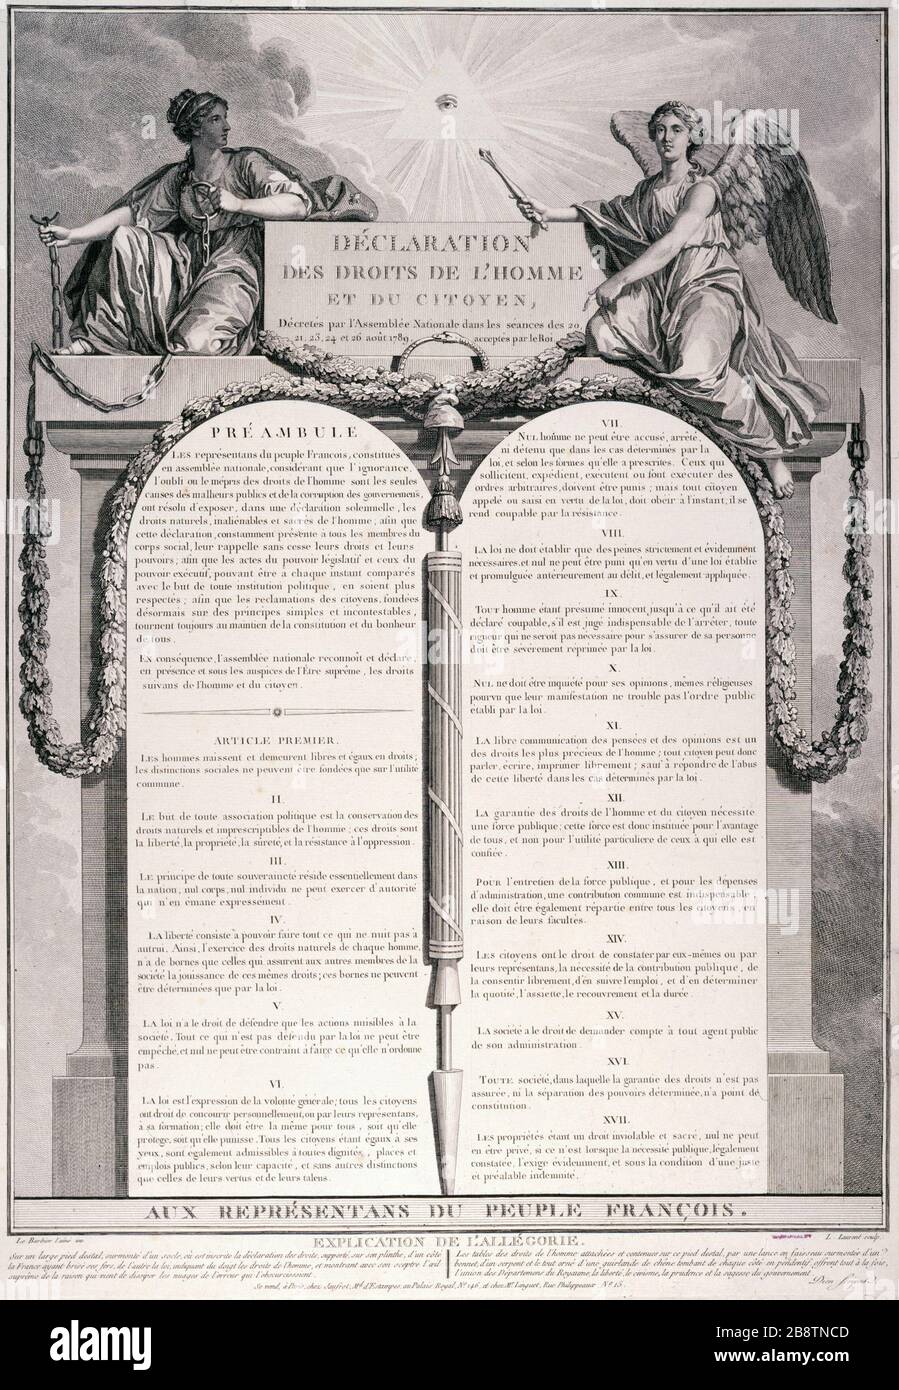 DÉCLARATION
DES DROITS DE L'HOMME
ET DU CITOYEN,
Décretés par l'Assemblée Nationale dans les séances des 20,
21, 23, 24 et 26 août 1789, acceptés par le Roi
PRÉAMBULE
LES représentans du peuple Francois, constitués
en assemblée nationale, considérant que l'ignorance,
l'oubli ou le mépris des droits de l'homme sont les seules
causes des malheurs publics et de la corruption des gouvernemens,
ont résolu d'exposer, dans une déclaration solennelle, les
droits naturels, inaliénables et sacrés de l'homme; afin que
cette déclaration, constamment présente à tous les membres du
corps social, leur rappelle sans cesse leurs droits et leurs
devoirs; afin que les actes du pouvoir législatif et ceux du
pouvoir exécutif, pouvant être à chaque instant comparés
avec le but de toute institution politique, en soient plus
respectés; afin que les reclamations des citoyens, fondées
désormais sur des principes simples et incontestables,
tournent toujours au maintien de la constitution et du bonheur
de tous.
EN conséquence, l'assemblée nationale reconnoît et déclare,
en présence et sous les auspices de l'Être suprême, les droits
suivans de l'homme et du citoyen.
ARTICLE PREMIER.
LES hommes naissent et demeurent libres et égaux en droits;
les distinctions sociales ne peuvent être fondées que sur l'utilité
commune.
II.
LE but de toute association politique est la conservation des
droits naturels et imprescriptibles de l'homme; ces droits sont
la liberté, la propriété, la sûreté, et la résistance à l'oppression.
III.
LE principe de toute souveraineté réside essentiellement dans
la nation, nul corps, nul individu ne peut exercer d'autorité
qui n'en émane expressement.
IV.
LA liberté consiste à pouvoir faire tout ce qui ne nuit pas à
autrui. Ainsi, l'exercice des droits naturels de chaque homme,
n'a de bornes que celles qui assurent aux autres membres de la
société la jouissance de ces mêmes droits; ces bornes ne peuvent
être déterminées que par la loi.
V.
LA loi n'a le droit de défendre que les actions nuisibles à la
société. Tout ce qui n'est pas défendu par la loi ne peut être
empêché, et nul ne peut être contraint à faire ce qu'elle n'ordonne
pas.
VI.
LA loi est l'expression de la volonté générale; tous les citoyens
ont droit de concourir personnellement, ou par leurs représentans,
à sa formation; elle doit être la même pour tous, soit qu'elle
protege, soit qu'elle punisse. Tous les citoyens étant égaux à ses
yeux, sont également admissibles à toutes dignités, places et
emplois publics, selon leur capacité, et sans autres distinctions
que celles de leurs vertus et de leurs talens.
VII.
NUL homme ne peut être accusé, arrêté,
ni détenu que dans les cas déterminés par la
loi, et selon les formes qu'elle a prescrites. Ceux qui
sollicitent, expédient, exécutent ou font exécuter des
ordres arbitraires, doivent être punis; mais tout citoyen
appelé ou saisi en vertu de la loi, doit obéir à l'instant; il se
rend coupable par la résistance.
VIII.
LA loi ne doit établir que des peines strictement et évidemment
nécessaires, et nul ne peut être puni qu'en vertu d'une loi établie
et promulguée antérieurement au délit, et légalement appliquée.
IX.
TOUT homme étant présumé innocent jusqu'à ce qu'il ait été
déclaré coupable, s'il est jugé indispensable de l'arrêter, toute
rigueur qui ne seroit pas nécessaire pour s'assurer de sa personne
doit être sévèrement réprimée par la loi.
X.
NUL ne doit être inquiété pour ses opinions, mêmes réligieuses
pourvu que leur manifestation ne trouble pas l'ordre public
établi par la loi.
XI.
LA libre communication des pensées et des opinions est un
des droits les plus précieux de l'homme; tout citoyen peut donc
parler, écrire, imprimer librement; sauf à répondre de l'abus
de cette liberté dans les cas déterminés par la loi.
XII.
LA garantie des droits de l'homme et du citoyen nécessite
une force publique; cette force est donc instituée pour l'avantage
de tous, et non pour l'utilité particuliere de ceux à qui elle est
confiée.
XIII.
POUR l'entretien de la force publique, et pour les dépenses
d'administration, une contribution commune est indispensable;
elle doit être également répartie entre tous les citoyens, en
raison de leurs facultés.
XIV.
LES citoyens ont le droit de constater par eux-mêmes ou par
leurs représentans, la nécessité de la contribution publique, de
la consentir librement, d'en suivre l'emploi, et d'en déterminer
la quotité, l'assiette, le recouvrement et la durée.
XV.
LA société a le droit de demander compte à tout agent public
de son administration.
XVI.
TOUTE société, dans laquelle la garantie des droits n'est pas
assurée, ni la séparation des pouvoirs déterminée, n'a point de
constitution.
XVII.
LES propriétés étant un droit inviolable et sacré, nul ne peut
en être privé, si ce n'est lorsque la nécessité publique, légalement
constatée, l'exige évidemment, et sous la condition d'une juste
et préalable indemnité.
AUX REPRÉSENTANS DU PEUPLE FRANÇOIS.
Le Barbier l'ainé inv.
L. Laurent sculp.
EXPLICATION DE L'ALLÉGORIE.
Sur un large pied destal, surmonté d'un socle, où est inscrite la déclaration des droits, supporté sur son plinthe, d'un côté
la France ayant brisé ses fers, de l'autre la loi, indiquant du doigt les droits de l'homme, et montrant avec son sceptre l'œil
suprême de la raison qui vient de dissiper les nuages de l'erreur qui l'obscurcissent.
Les tables des droits de l'homme attachées et contenues sur ce pied destal, par une lance en faisceau surmontée d'un
bonnet, d'un serpent et le tout orné d'une guirlande de chêne tombant de chaque côté en pendentif, offrent tout à la fois,
l'union des Départemens du Royaume, la liberté, le civisme, la prudence et la sagesse du gouvernement
Se vend, à Paris, chez Jauffret, Md. d'Estampes, au Palais Royal, No. 146, et chez Mr. Linguet, Rue Philippeaux No. 15.
alamy
Image ID: 2B8TNCD
www.alamy.com